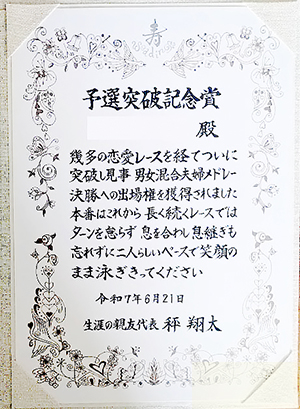 寿
予選突破記念賞
殿
幾多の恋愛レースを経てついに
突破し見事 男女混合夫婦メドレー
決勝への出場権を獲得されました
本番はこれから 長く続くレースでは
ターンを怠らず 息を合わし 息継ぎも
忘れずに二人らしいペースで笑顔の
まま泳ぎきってください
令和7年6月21日
生涯の親友代表 秤 翔太